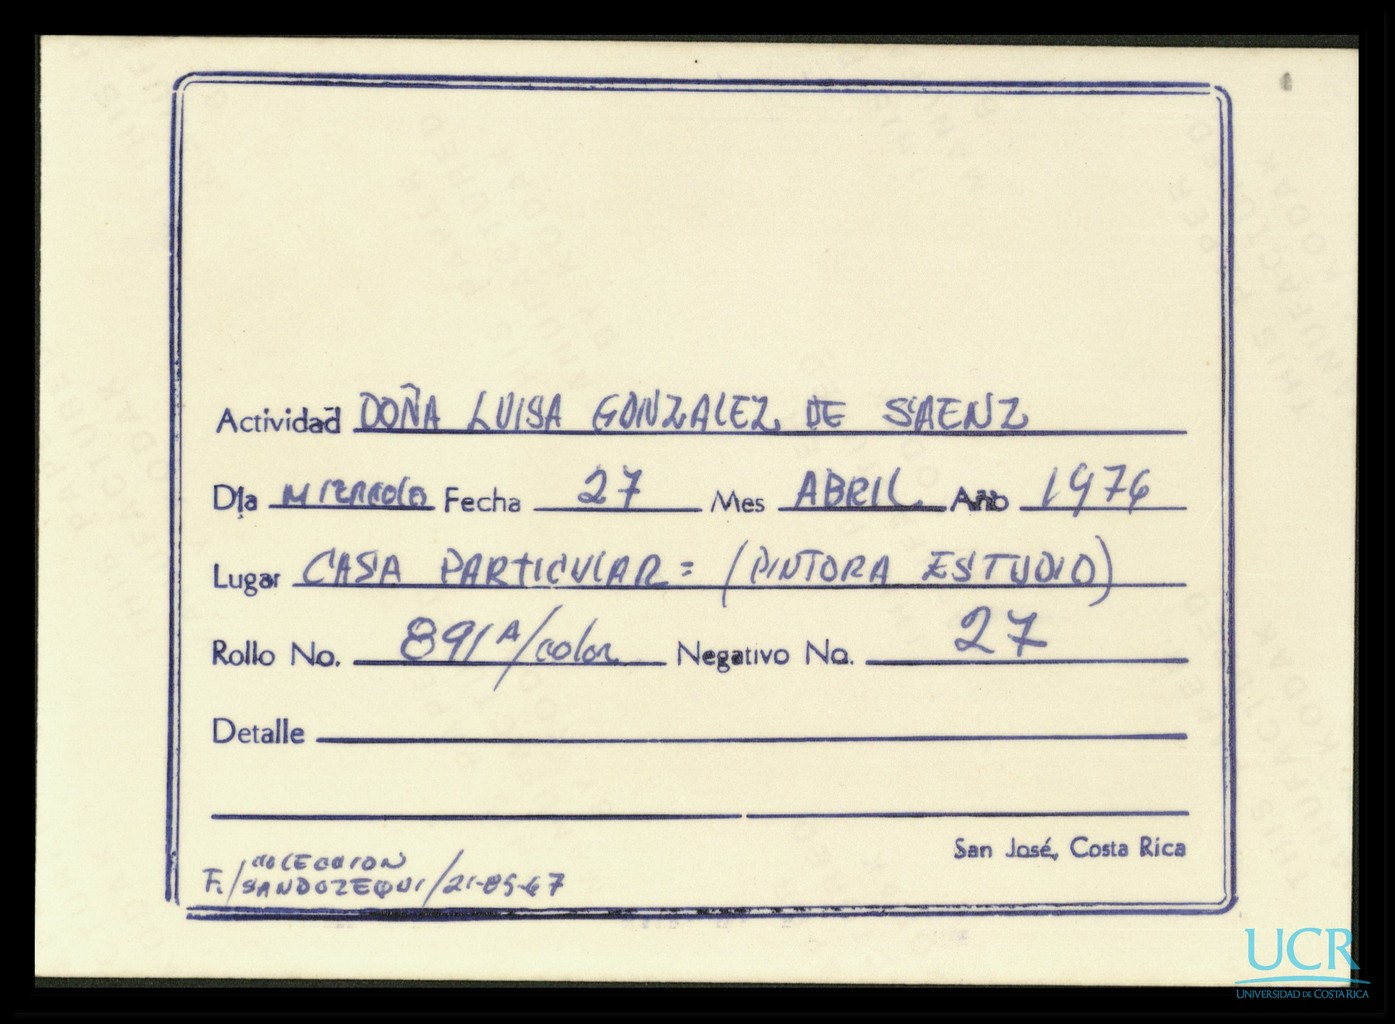 Actividad DOÑA LUISA GONZALEZ DE SAENZ
Día MIERCOLES Fecha 27 Mes ABRIL Año 1976
Lugar CASA PARTICULAR = (PINTORA ESTUDIO)
Rollo No. 891A/color Negativo No. 27
Detalle
San José, Costa Rica
COLECCION
F./SANDOZEQUI/21-05-67
UCR
UNIVERSIDAD DE COSTA RICA